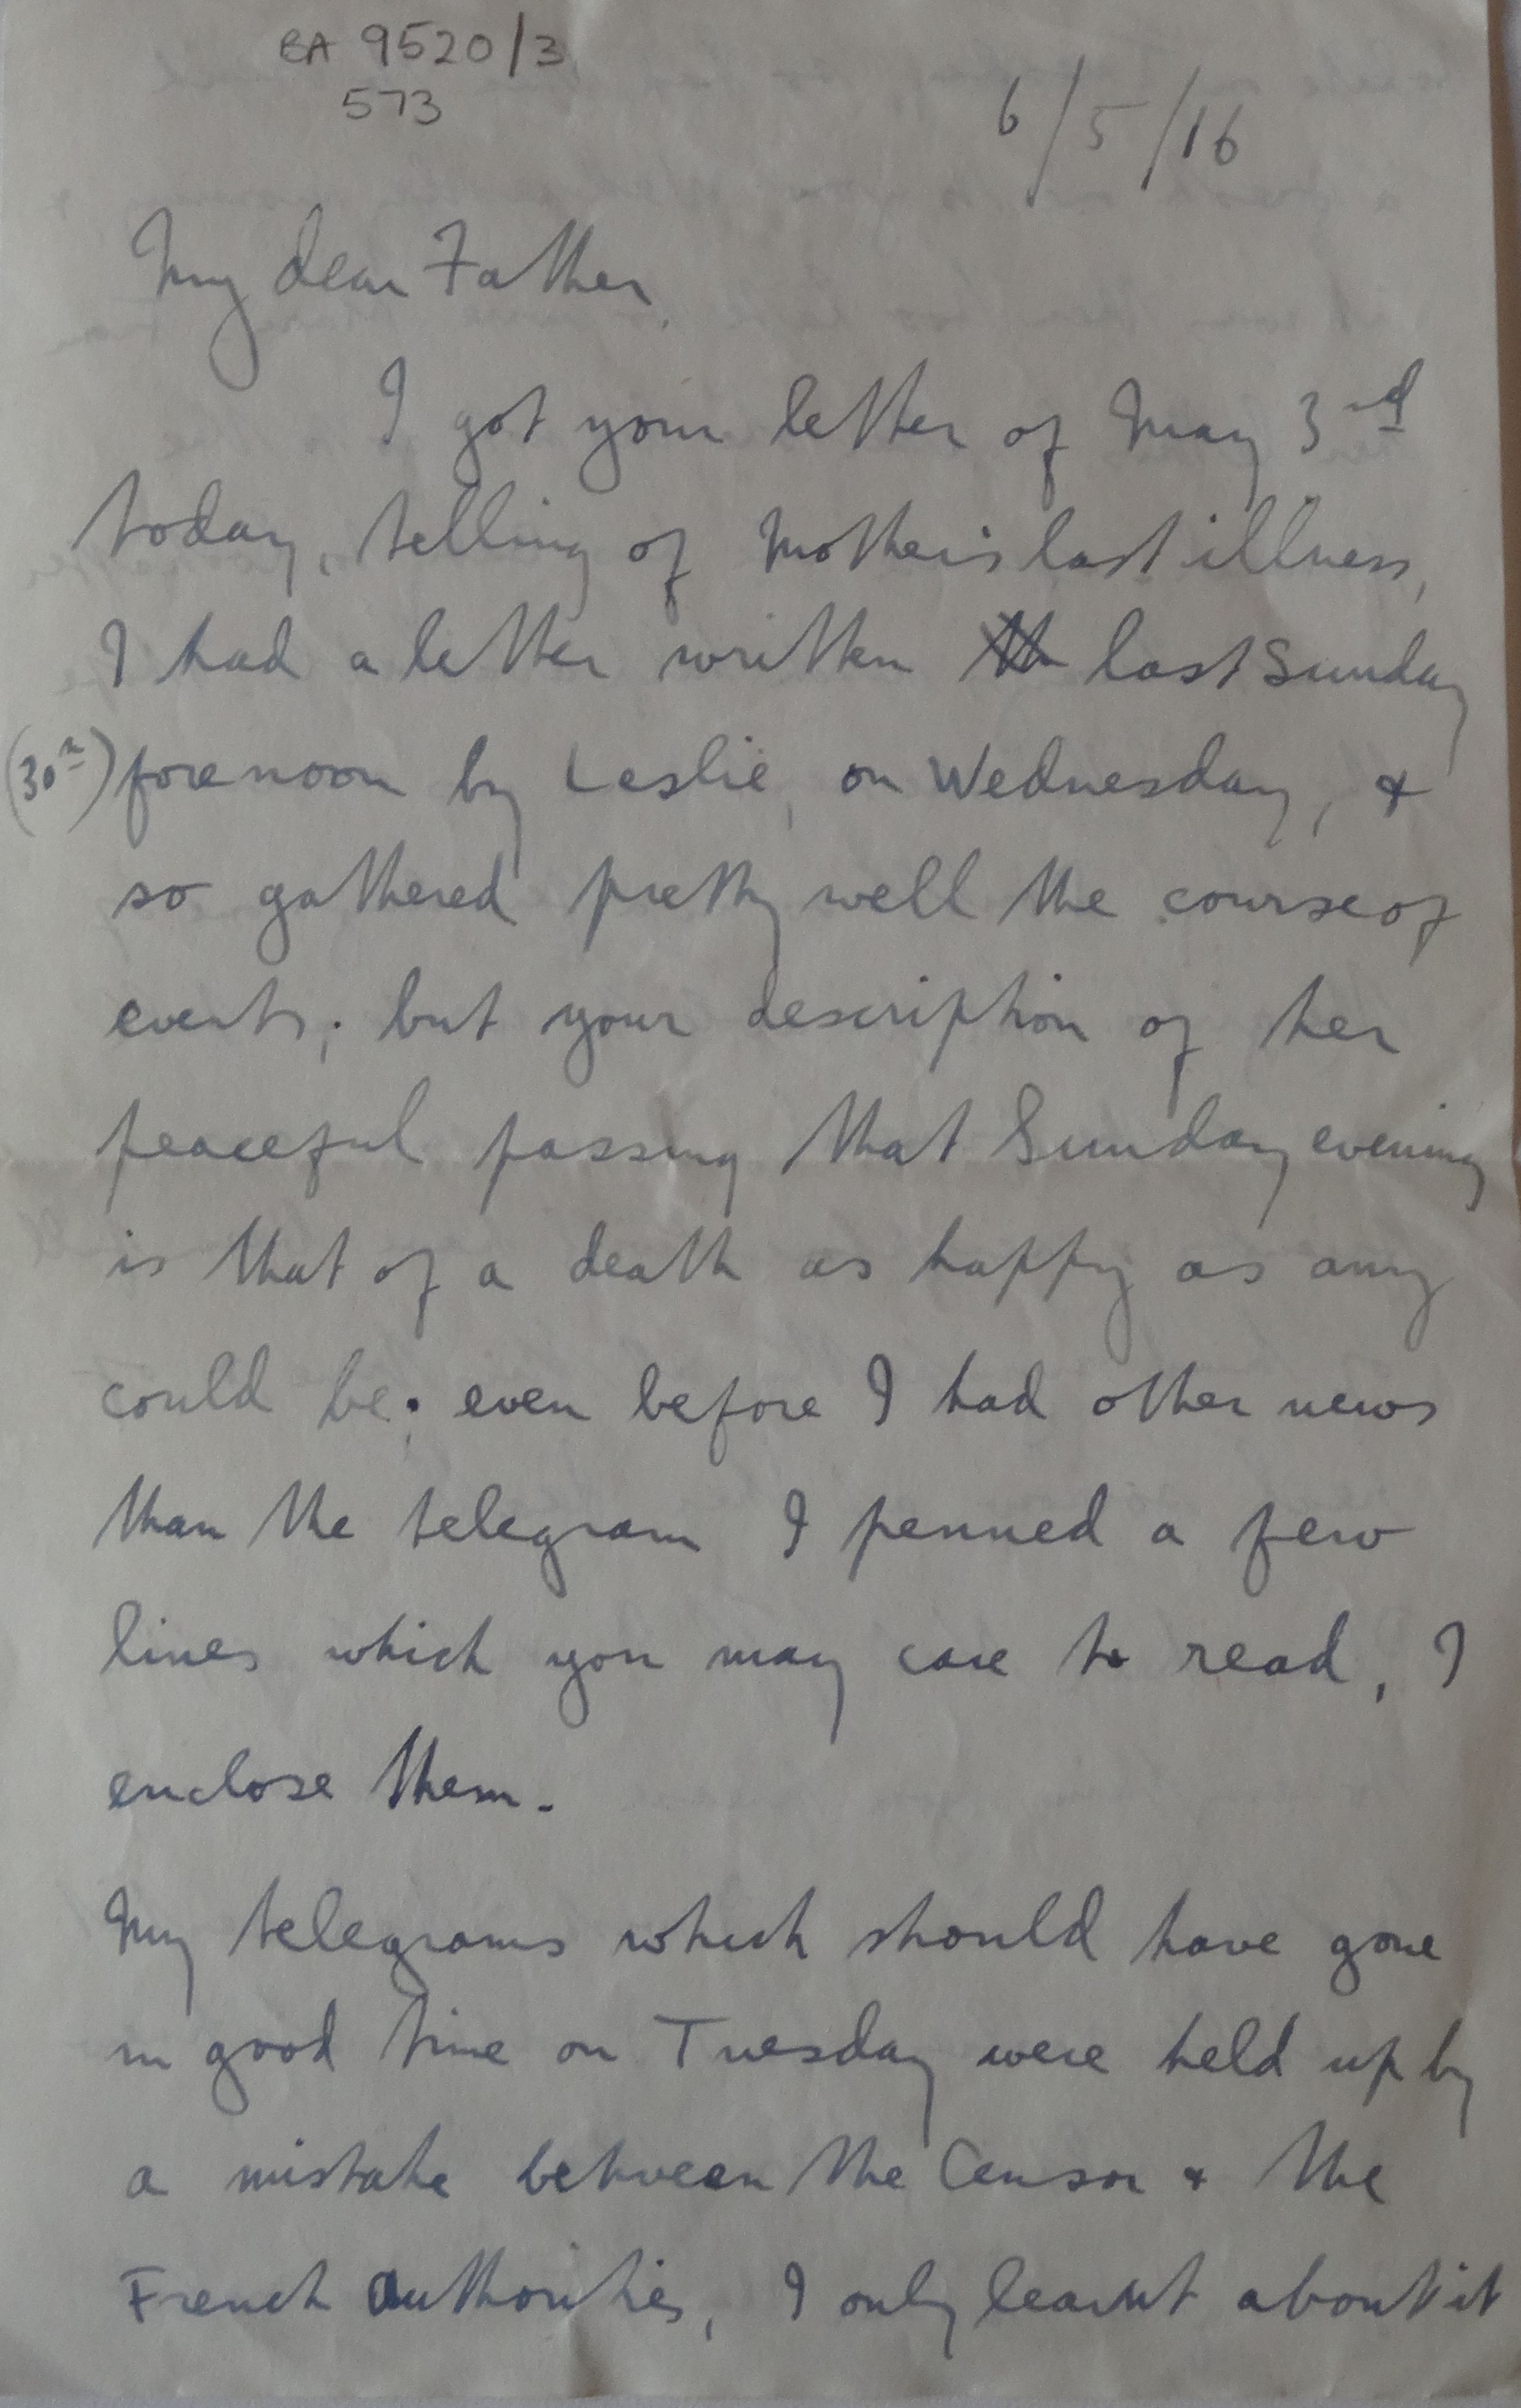 BA 9520/3
573
6/5/16
My dear Father,
I got your letter of May 3rd
today, telling of Mother's last illness,
I had a letter written th last Sunday
(30th) forenoon by Leslie, on Wednesday, &
so gathered pretty well the course of
events; but your description of her
peaceful passing that Sunday evening
is that of a death as happy as any
could be; even before I had other news
than the telegram I penned a few
lines which you may care to read, I
enclose them.
My telegrams which should have gone
in good time on Tuesday were held up by
a mistake between the Censor & the
French authorities, I only learnt about it